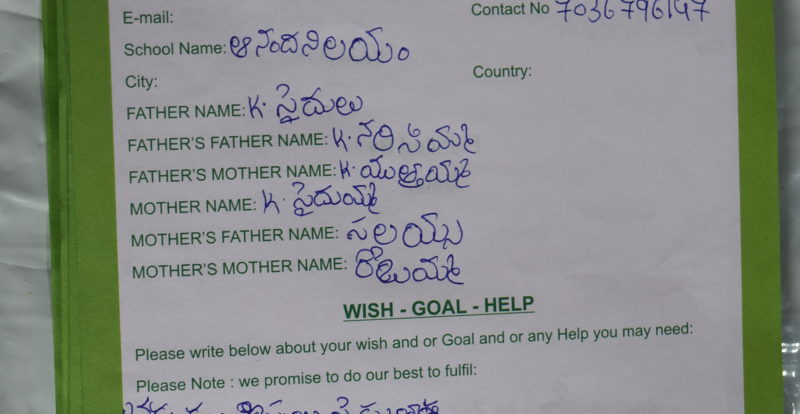 E-mail:
Contact No 7036796147
School Name: ఆనందనిలయం
City:
Country:
FATHER NAME: K. సైదులు
FATHER'S FATHER NAME: K.
FATHER'S MOTHER NAME: K.
MOTHER NAME: K. సైదమ్మ
MOTHER'S FATHER NAME: సలయ్య
MOTHER'S MOTHER NAME:
WISH - GOAL - HELP
Please write below about your wish and or Goal and or any Help you may need:
Please Note : we promise to do our best to fulfil: